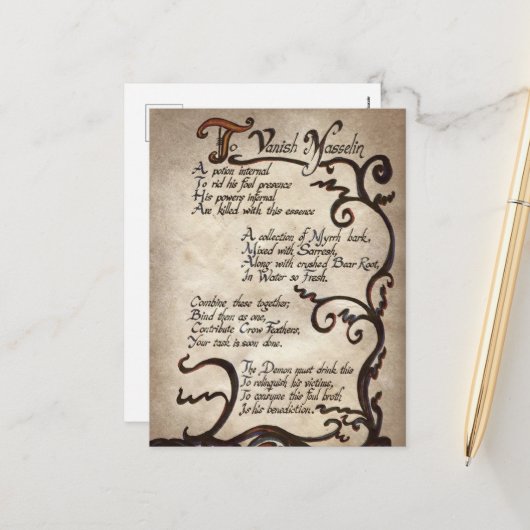 To Vanish Masselin
A potion internal
To rid his foul presence
His powers infernal
Are killed with this essence
A collection of Myrrh bark,
Mixed with Sarresh,
Along with crushed Bear Root,
In Water so Fresh.
Combine these together;
Bind them as one,
Contribute Crow Feathers,
Your task is soon done.
The Demon must drink this
To relinquish his victims,
To consume this foul broth
Is his benediction.